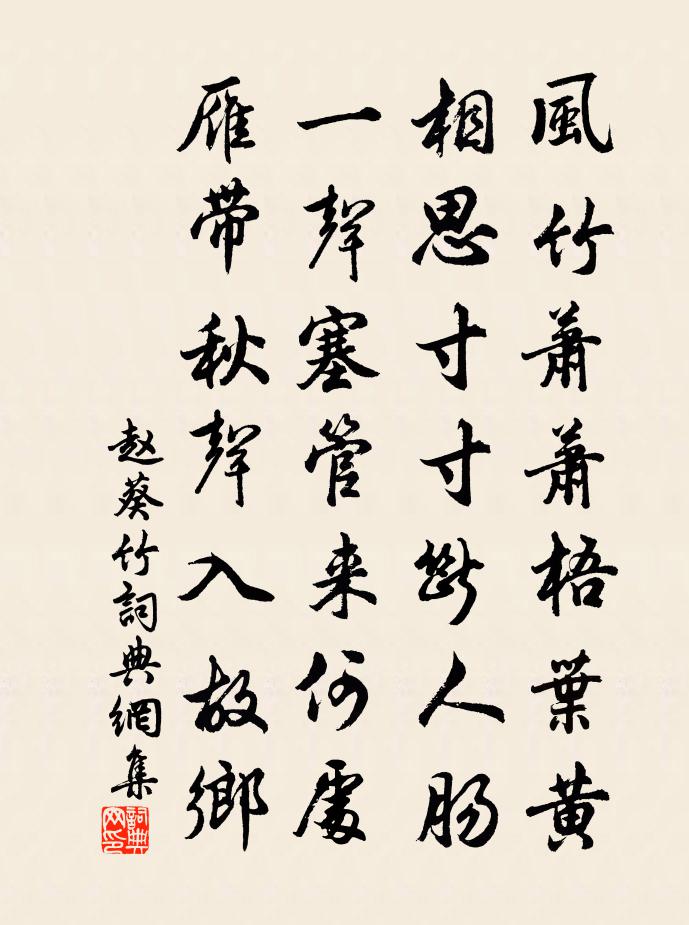 風竹蕭蕭梧葉黃
相思寸寸斷人腸
一聲塞管来何處
雁帶秋聲入故鄉
赵葵竹詞典網集
詞典网印